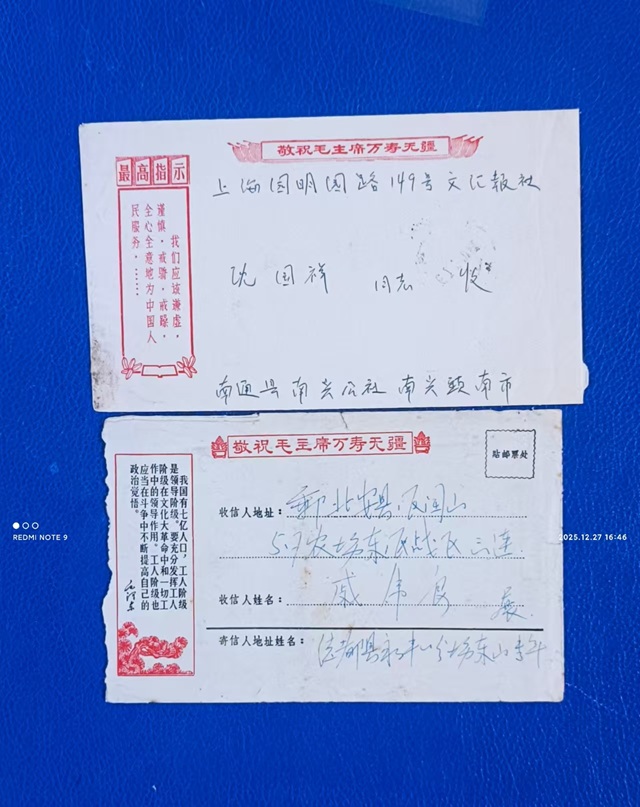 敬祝毛主席万寿无疆
最高指示
我们应该谦虚,
谨慎,戒骄,戒躁,
全心全意地为中国人
民服务,……
上海园明园路149号文汇报社
沈国祥 同志 收
南通县南兴公社南兴头南市
敬祝毛主席万寿无疆
贴邮票处
我国有七亿人口,工人阶级
是领导阶级。要充分发挥工人
阶级在文化大革命中和一切工
作中的领导作用。工人阶级也
应当在斗争中不断提高自己的
政治觉悟。
毛泽东
收信人地址:
5.7农场东
三连
收信人姓名:
寄信人地址姓名:
REDMI NOTE 9
2025.12.27 16:46